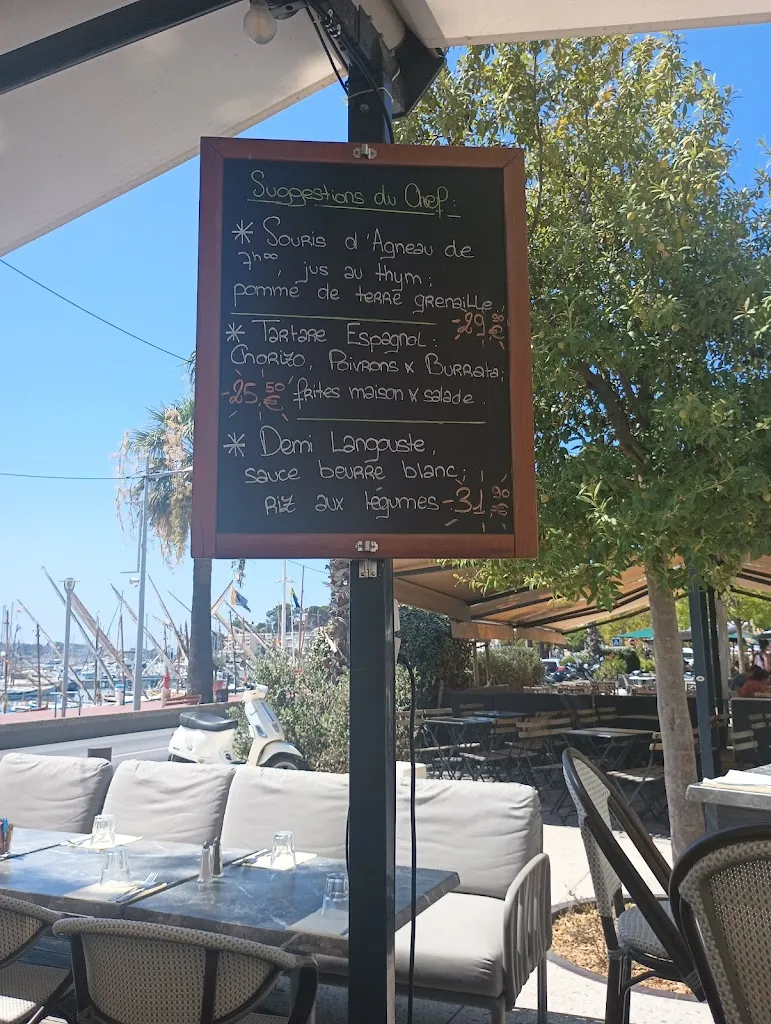 Suggestions du Chef :
* Souris d'Agneau de
7h00, jus au thym ;
pomme de terre grenaille
29 90 €
* Tartare Espagnol :
Chorizo, Poivrons x Burrata,
25 50 € frites maison x salade
* Demi Langouste,
sauce beurre blanc,
riz aux légumes 31 90 €